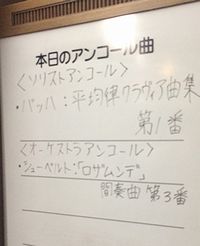 本日のアンコール曲
〈ソリストアンコール〉
・バッハ：平均律クラヴィア曲集
第1番
〈オーケストラアンコール〉
・シューベルト：「ロザムンデ」
間奏曲 第3番